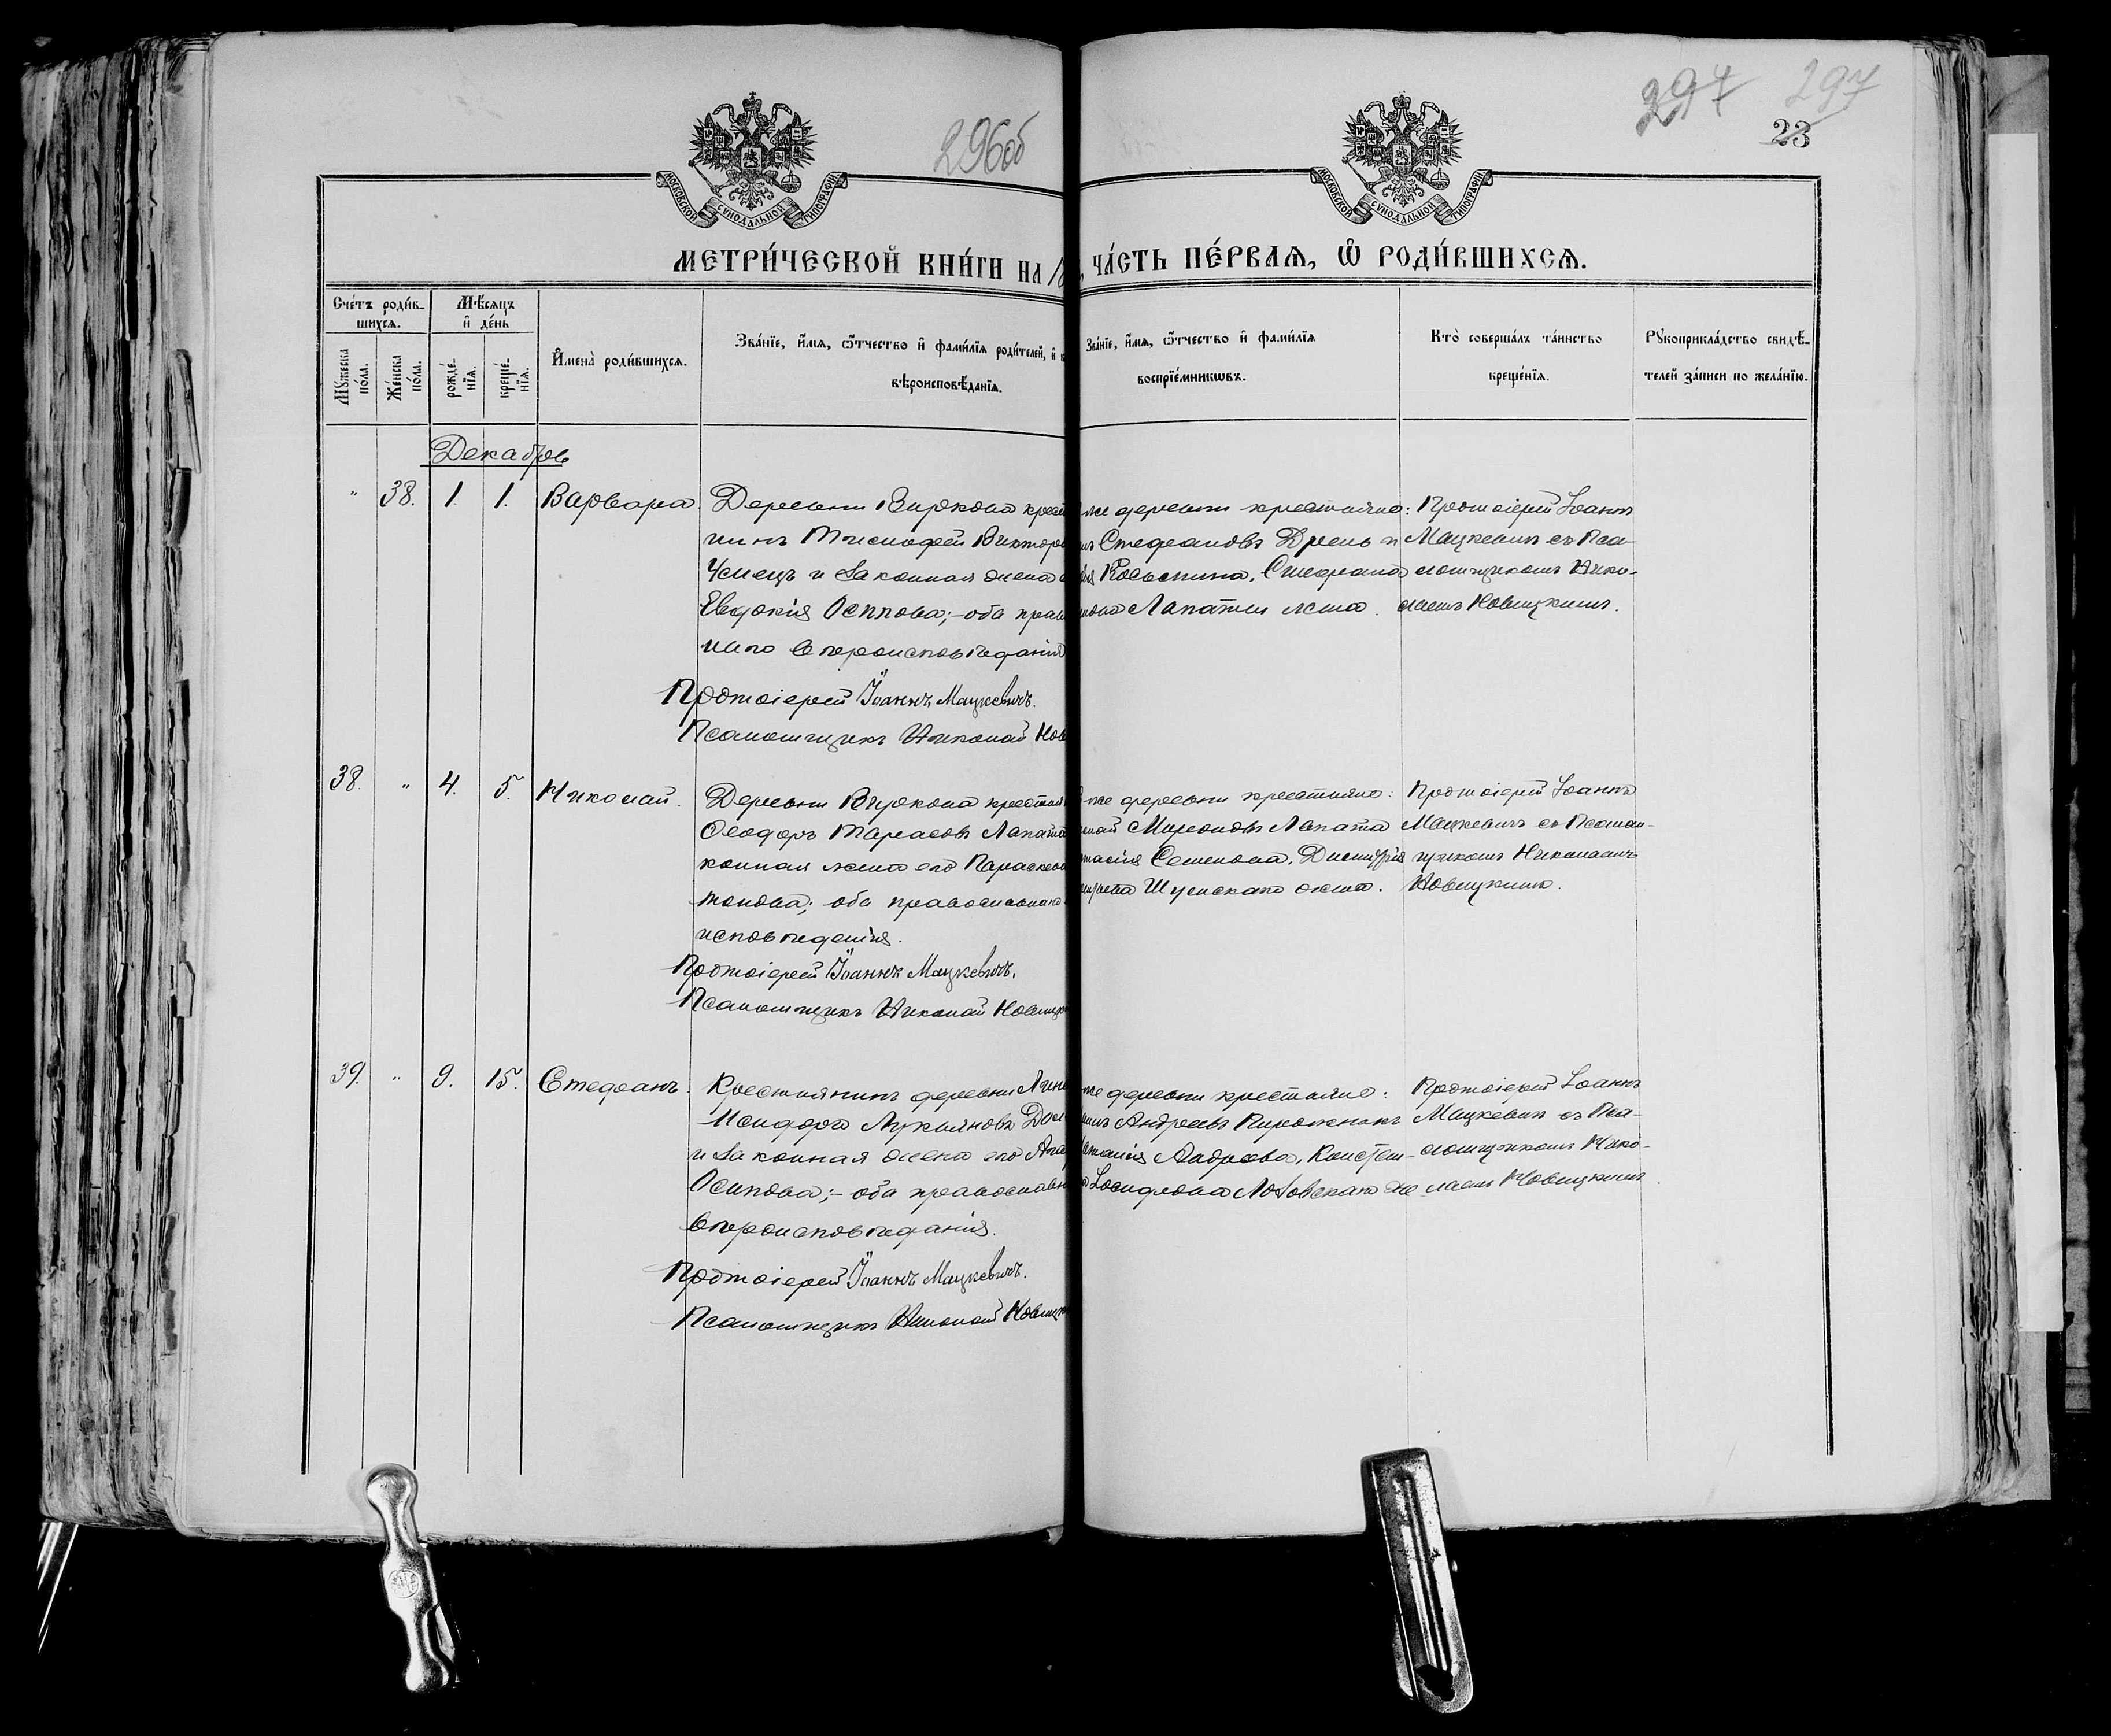 296об
297 297
23
МОСКОВСКОЙ СУНОДАЛЬНОЙ ТИПОГРАФІИ
МОСКОВСКОЙ СУНОДАЛЬНОЙ ТИПОГРАФІИ
МЕТРИ́ЧЕСКОЙ КНИ́ГИ НА 18
ЧА́СТЬ ПЕ́РВАЯ, Ѡ РОДИ́ВШИХСЯ.
Сче́тъ роди́в-
шихся.
Мѣсяцъ
и де́нь
Мужеска по́ла.
Же́нска по́ла.
рожде́-нїя.
креще́-нїя.
Имена̀ роди́вшихся.
Зва́нїе, и́мя, ѻ́тчество и фами́лїя роди́телей, и к
вѣроисповѣданїя.
Зва́нїе, и́мя, ѻ́тчество и фами́лїя
воспрїе́мникѡвъ.
Кто̀ соверша́лъ та́инство
креще́нїя.
Рукоприкла́дство свидѣ́-
телей за́писи по жела́нїю.
Декабрь
" 38. 1. 1. Варвара
Деревни Виркова крест
нинъ Тимофей Викторо
и законная жена е
Евдокія Осипова; - оба прав
наго вѣроисповѣданія
Протоіерей Іоаннъ Мацкевичъ.
Псаломщикъ Николай Нов
же деревни крестьяне:
Стефановъ Дрень и
Стефана
Лапаты жена.
Протоіерей Іоаннъ
Мацкевичъ съ Пса-
ломщикомъ Нико-
лаемъ Новицкимъ.
38. " 4. 5. Николай.
Деревни Виркова крестьян
Ѳеодоръ Тарасовъ Лапата
конная жена его Параскева
оба православнаго
исповѣданія.
Протоіерей Іоаннъ Мацкевичъ.
Псаломщикъ Николай Новицк
же деревни крестьяне:
лай Мироновъ Лапата
тасія Семенова, Димитрія
жена.
Протоіерей Іоаннъ
Мацкевичъ съ Псалом-
щикомъ Николаемъ
Новицкимъ.
39. " 9. 15. Стефанъ.
Крестьянинъ деревни
Исидоръ Лукьяновъ
и законная жена его Ага
Осипова; - оба православн
вѣроисповѣданія.
Протоіерей Іоаннъ Мацкевичъ.
Псаломщикъ Николай Новицк
же деревни крестьяне:
Андреевъ Пирожникъ
Андреева, Констан-
Іосифова Лозовскаго же
Протоіерей Іоаннъ
Мацкевичъ съ Пса-
ломщикомъ Нико-
лаемъ Новицкимъ.